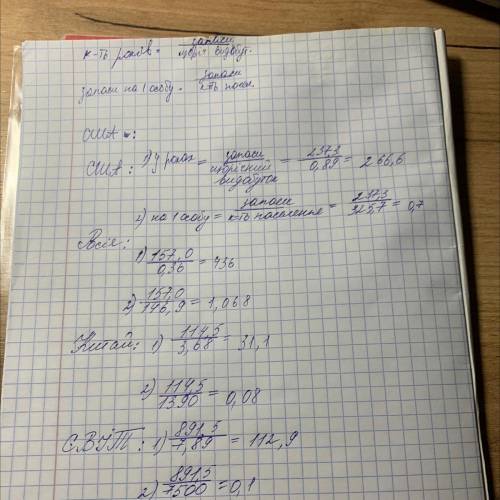 к-ть років = запаси / щоріч. видобут.
запаси на 1 особу = запаси / к-ть насел.
США :
США : 1) у роках = запаси / щорічний видобуток = 237,3 / 0,89 = 266,6
2) на 1 особу = запаси / к-ть населення = 237,3 / 325,7 = 0,7
Росія:
1) 157,0 / 0,36 = 436
2) 157,0 / 146,9 = 1,068
Китай: 1) 114,5 / 3,68 = 31,1
2) 114,5 / 1390 = 0,08
СВІТ : 1) 891,5 / 7,89 = 112,9
2) 891,5 / 7500 = 0,1